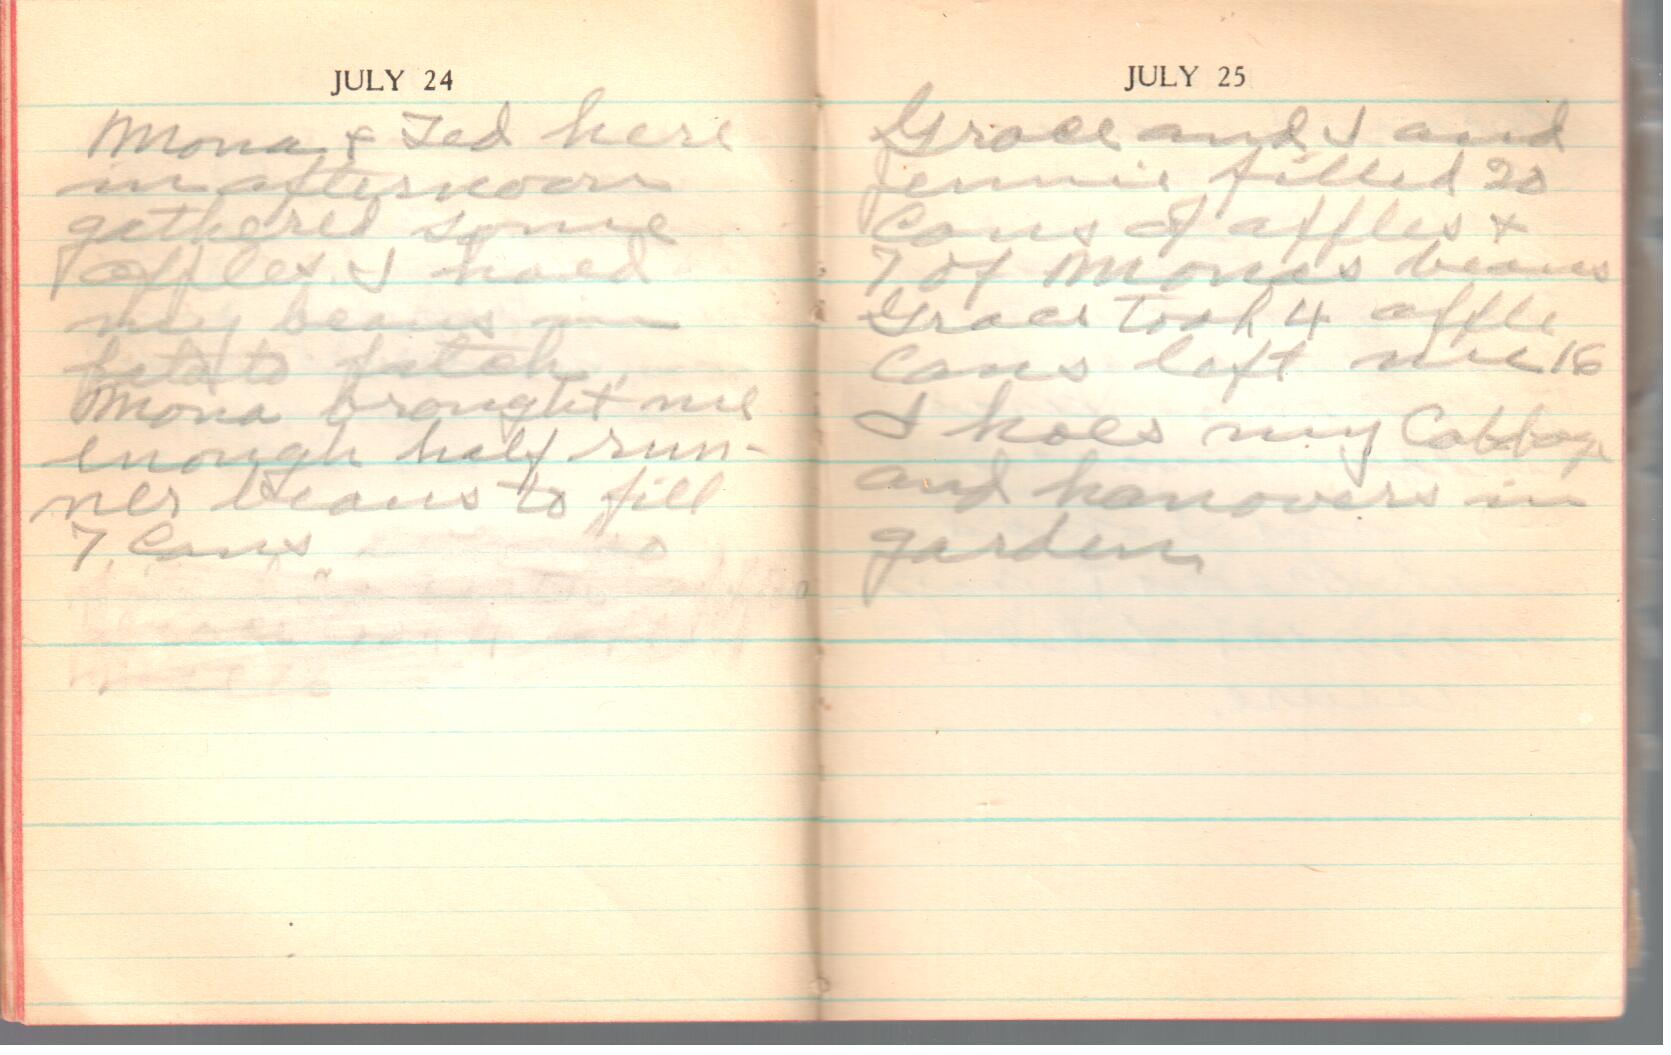 JULY 24
Mona & Ted here
in afternoon
gathered some
apples. I hoed
my beans in
potato patch.
Mona brought me
enough half run-
ner beans to fill
7 Cans
JULY 25
Grace and I and
Jennie filled 20
Cans of apples &
7 of Monas beans
Grace took 4 apple
Cans left me 16
I hoes my Cabbage
and hanovers in
garden